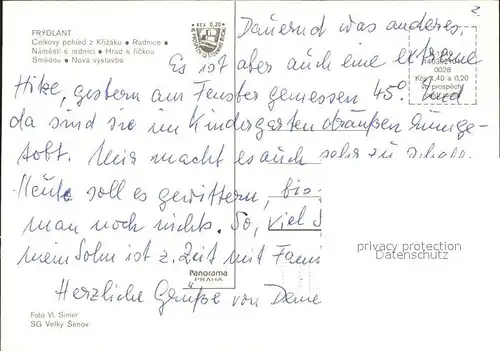 2.
FRÝDLANT
Celkový pohled z Křížáku • Radnice •
Náměstí s radnicí • Hrad s říčkou
Smědou • Nová výstavba
Kčs 0,20
Dauernd was anderes.
Es ist aber auch eine
0028
Kčs 1,40 a 0,20
ve prospěch
Hitze, gestern am Fenster gemessen 45°. Und
da sind sie im Kindergarten draußen
tobt. Mir macht es auch sehr zu schaf-
Heute soll es gewittern, bis-
man noch nichts. So, viel
mein Sohn ist z. Zeit mit Fami
Herzliche Grüße von
privacy protection
Datenschutz
Panorama
PRAHA
Foto Vl. Šimer
SG Velký Šenov